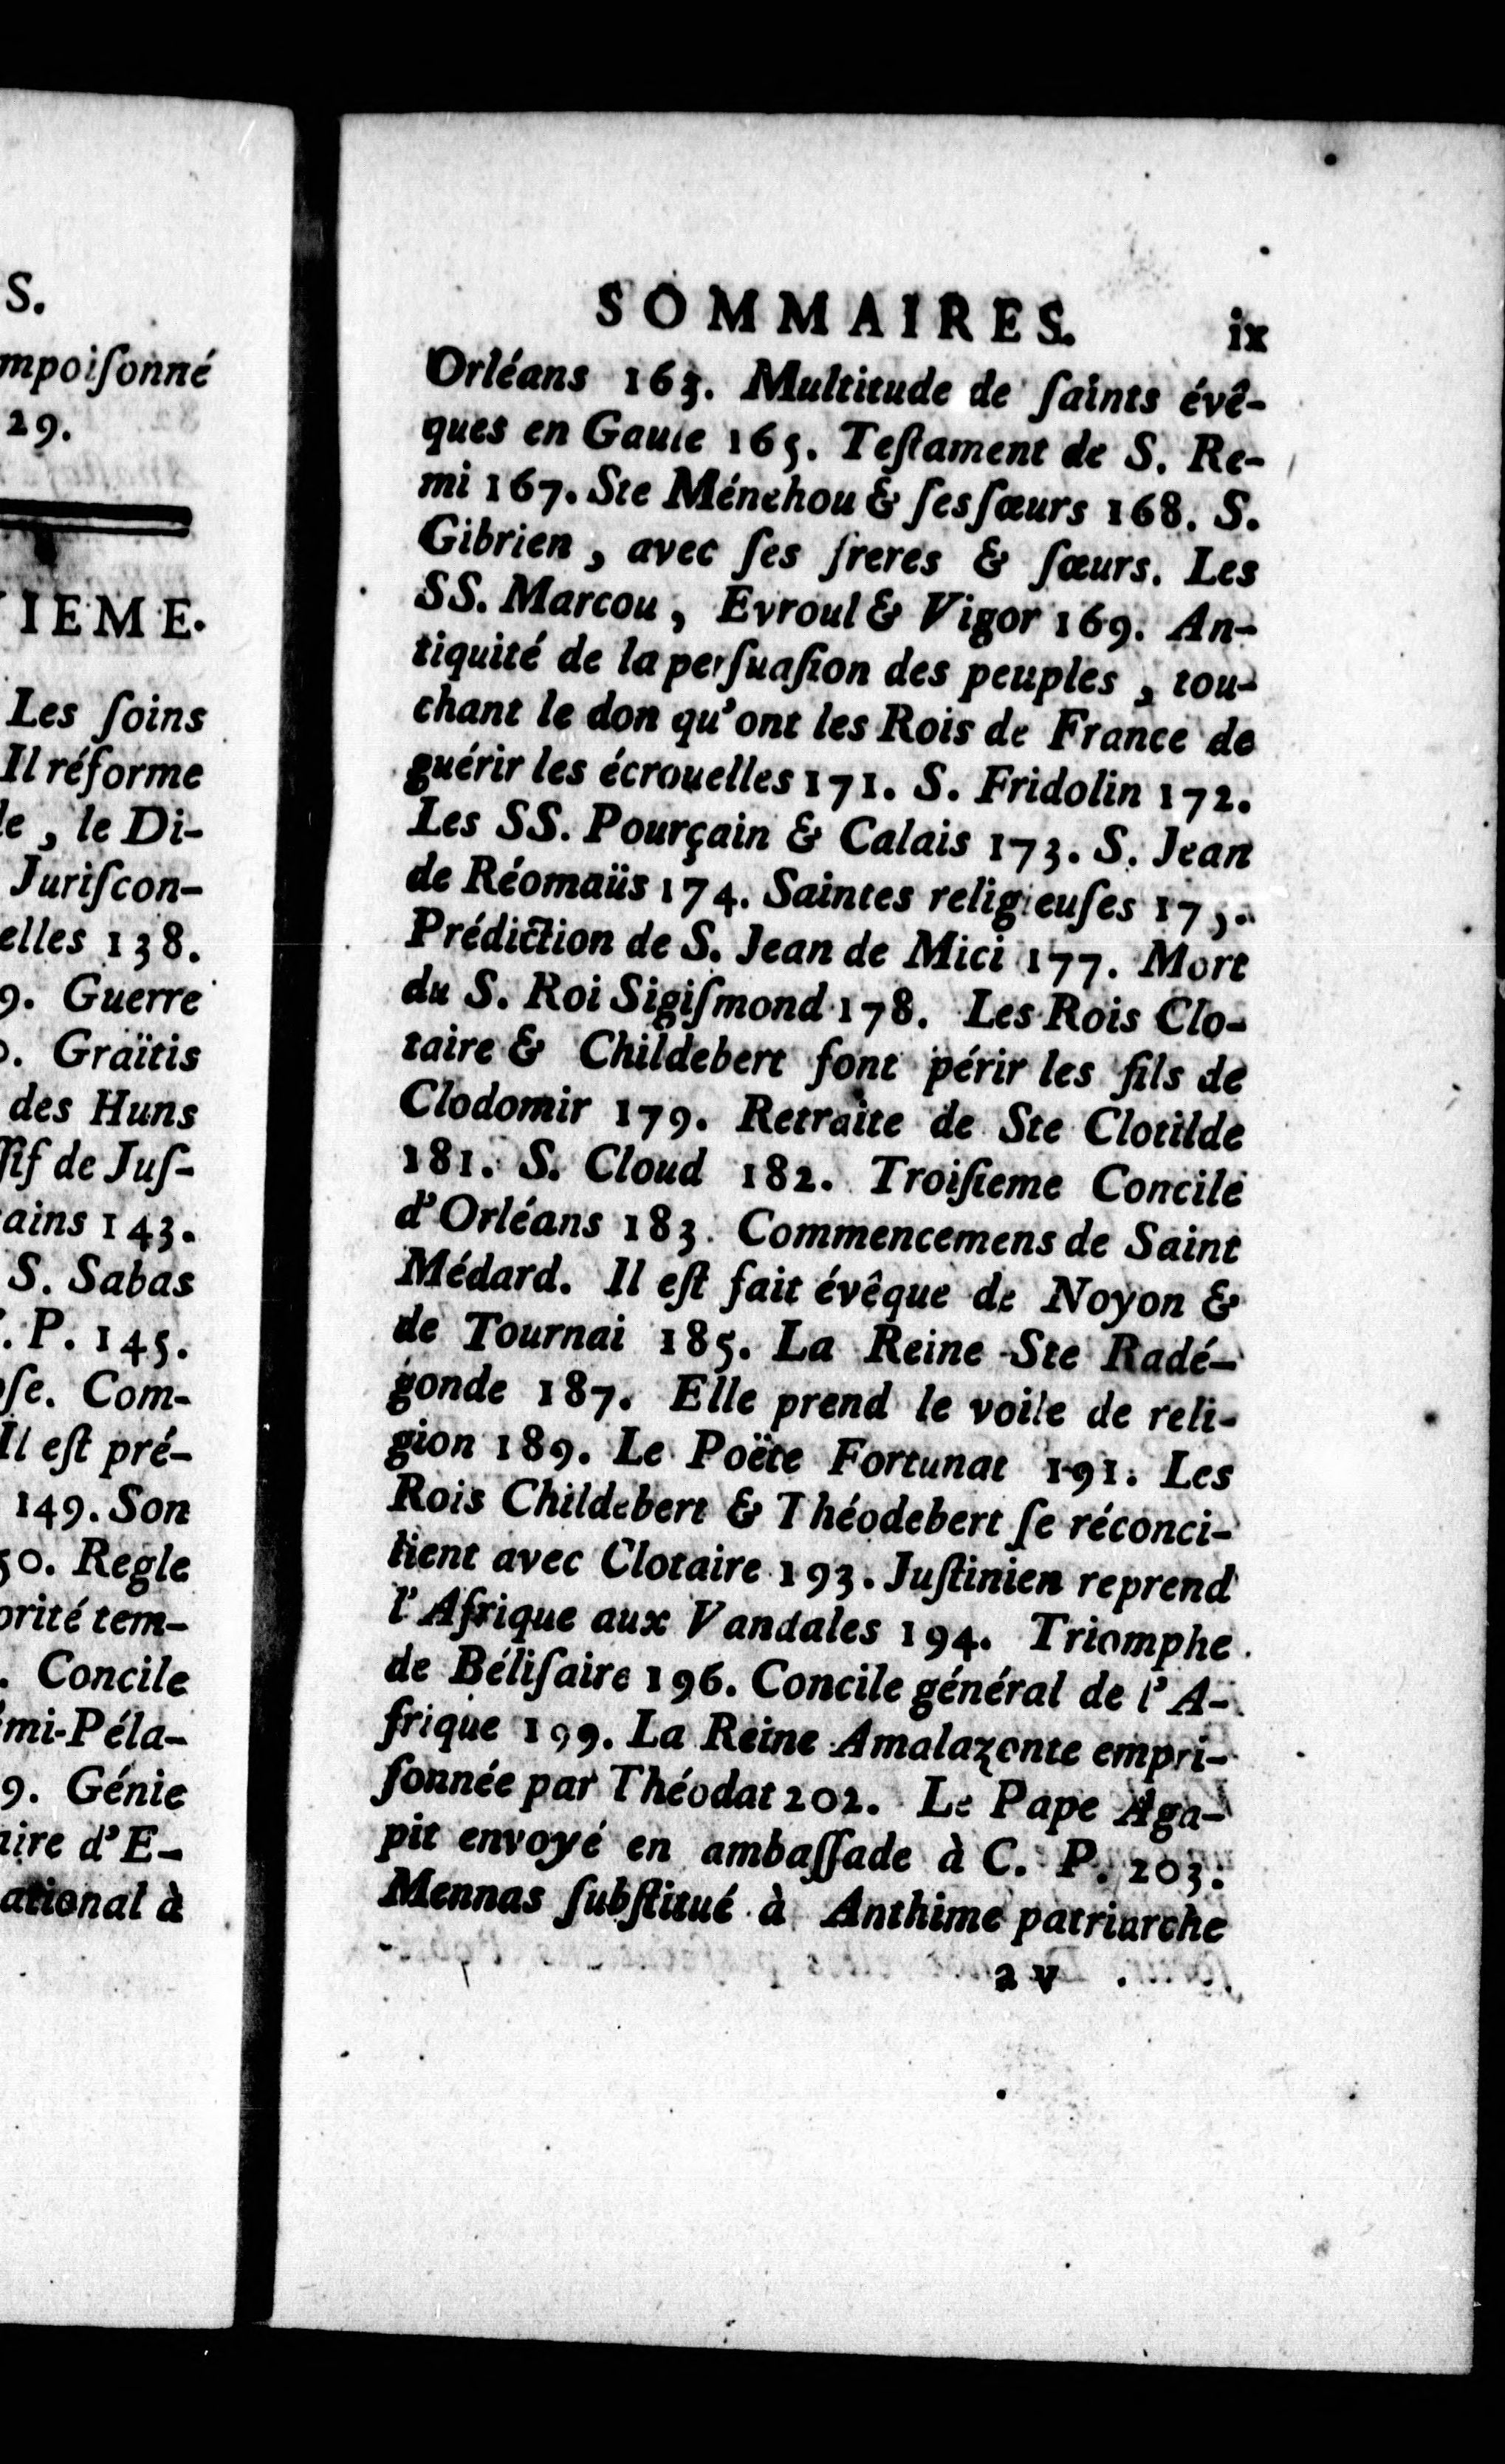 S.
mpoiſonné
29.
IEME.
Les ſoins
Il réforme
le, le Di-
Juriſcon-
elles 138.
9. Guerre
Graïtis
des Huns
ſif de Juſ-
ains 143.
S. Sabas
P. 145.
ſe. Com-
Il eſt pré-
149. Son
50. Regle
orité tem-
Concile
mi-Péla-
9. Génie
aire d'E-
ational à
SOMMAIRES. ix
Orléans 163. Multitude de ſaints évê-
ques en Gaule 165. Teſtament de S. Re-
mi 167. Ste Ménehou & ſes ſœurs 168. S.
Gibrien, avec ſes freres & ſœurs. Les
SS. Marcou, Evroul & Vigor 169. An-
tiquité de la perſuaſion des peuples, tou-
chant le don qu'ont les Rois de France de
guérir les écrouelles 171. S. Fridolin 172.
Les SS. Pourçain & Calais 173. S. Jean
de Réomaüs 174. Saintes religieuſes 175.
Prédiction de S. Jean de Mici 177. Mort
du S. Roi Sigiſmond 178. Les Rois Clo-
taire & Childebert font périr les fils de
Clodomir 179. Retraite de Ste Clotilde
181. S. Cloud 182. Troiſieme Concile
d'Orléans 183. Commencemens de Saint
Médard. Il eſt fait évêque de Noyon &
de Tournai 185. La Reine Ste Radé-
gonde 187. Elle prend le voile de reli-
gion 189. Le Poëte Fortunat 191. Les
Rois Childebert & Théodebert ſe réconci-
lient avec Clotaire 193. Juſtinien reprend
l'Afrique aux Vandales 194. Triomphe
de Béliſaire 196. Concile général de l'A-
frique 199. La Reine Amalazonte empri-
ſonnée par Théodat 202. Le Pape Aga-
pit envoyé en ambaſſade à C. P. 203.
Mennas ſubſtitué à Anthime patriarche
a v